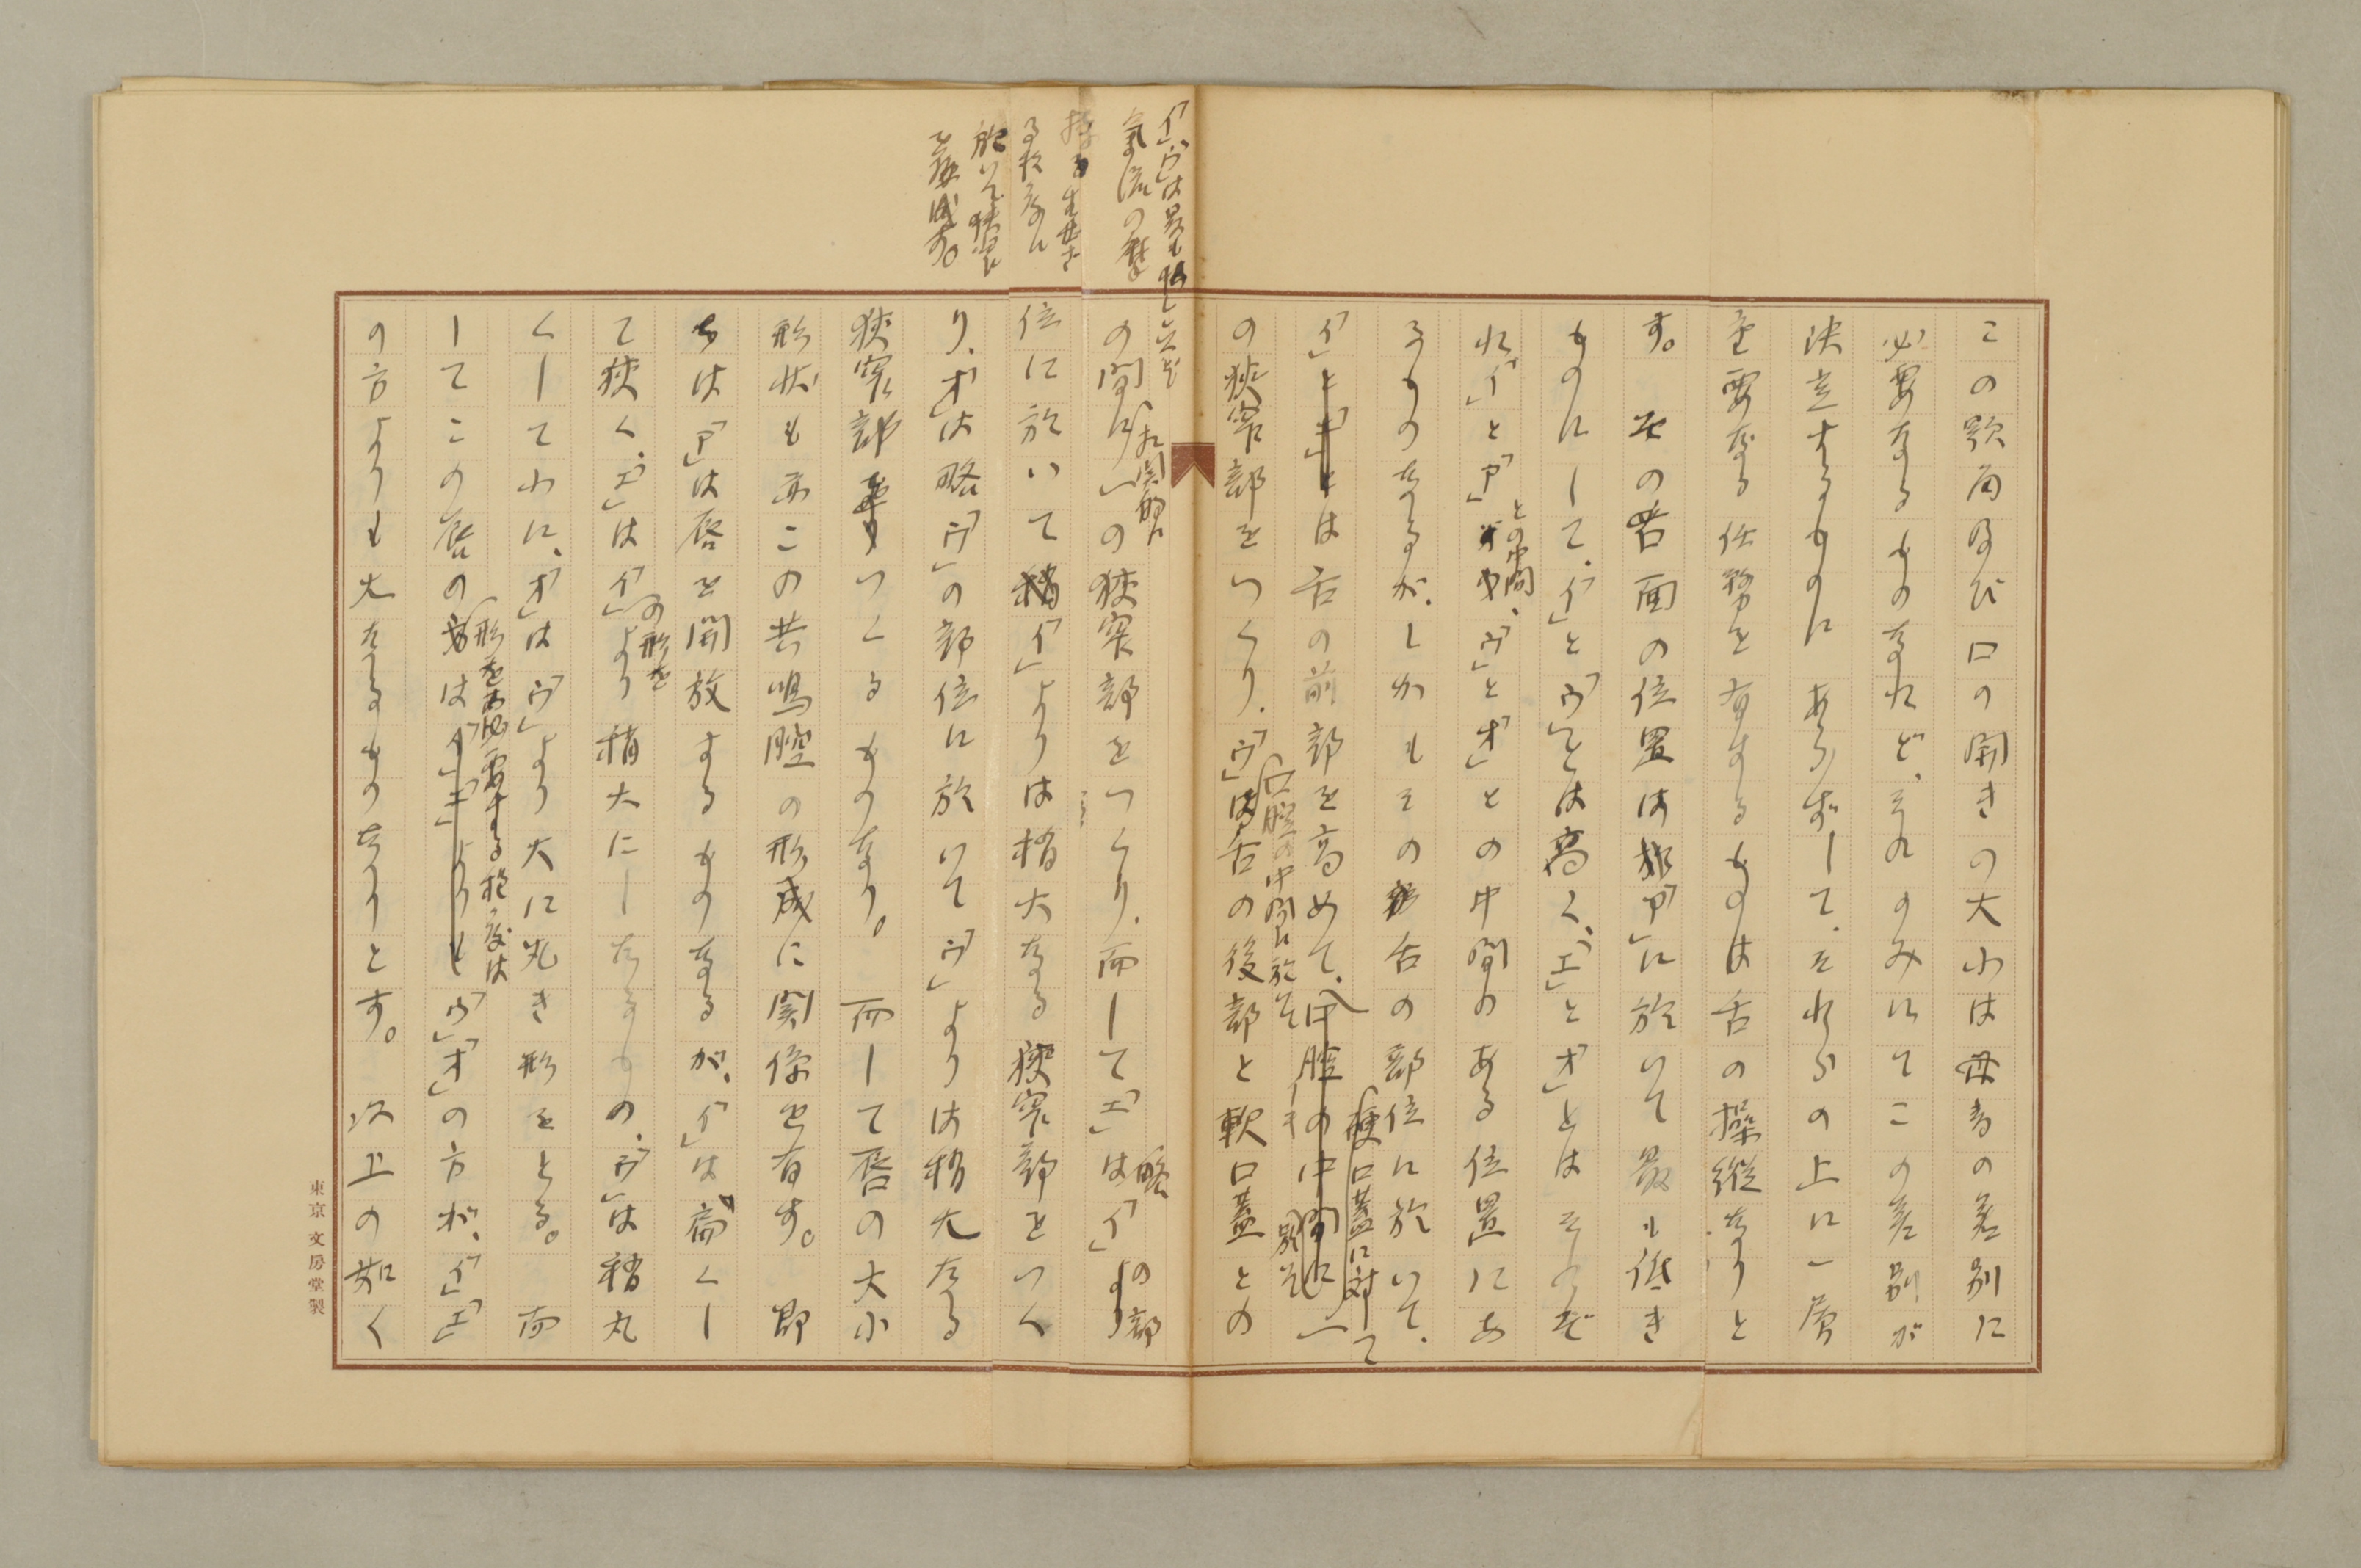 この顎角及び口の開きの大小は母音の差別に
必要なるものなれど、それのみにてこの差別が
決立するものにあらずして、それらの上に一層
重要なる任務を有するものは舌の操縦なりと
す。その舌面の位置は「ア」に於いて最も低き
ものにして、「イ」と「ウ」とは高く、「エ」と「オ」とはそのぞ
れ「イ」と「ア」との中間、「ウ」と「オ」との中間のある位置にあ
るものなるが、しかもその舌の部位に於いて、
硬口蓋に対して
「イ」とは舌の前部を高めて、口腔の中間に一
口腔の中間に於て
の狭窄部をつくり、「ウ」は舌の後部と軟口蓋との
「イ」「ウ」は最も
氣流の摩
る程度に
於いて狭窄
を形成す。
の間に一の狭窄部をつくり、而して「エ」は略「イ」の部
位に於いて「イ」よりは稍大なる狭窄部をつく
り、「オ」は略「ウ」の部位に於いて「ウ」よりは稍大なる
狭窄部をつくるものなり。而して唇の大小
形状も亦この共鳴腔の形成に関係を有す。即
ちは「ア」は唇を開放するものなるが、「イ」は扁くし
の形を
て狭く、「エ」は「イ」より稍大にしたるもの、「ウ」は稍丸
くして小に、「オ」は「ウ」より大に丸き形をとる。而
形を必要する程度は
してこの唇の は「イ」「エ」よりも「ウ」「オ」の方が、「イ」「エ」
の方よりも大なるものなりとす。以上の如く
東京文房堂製